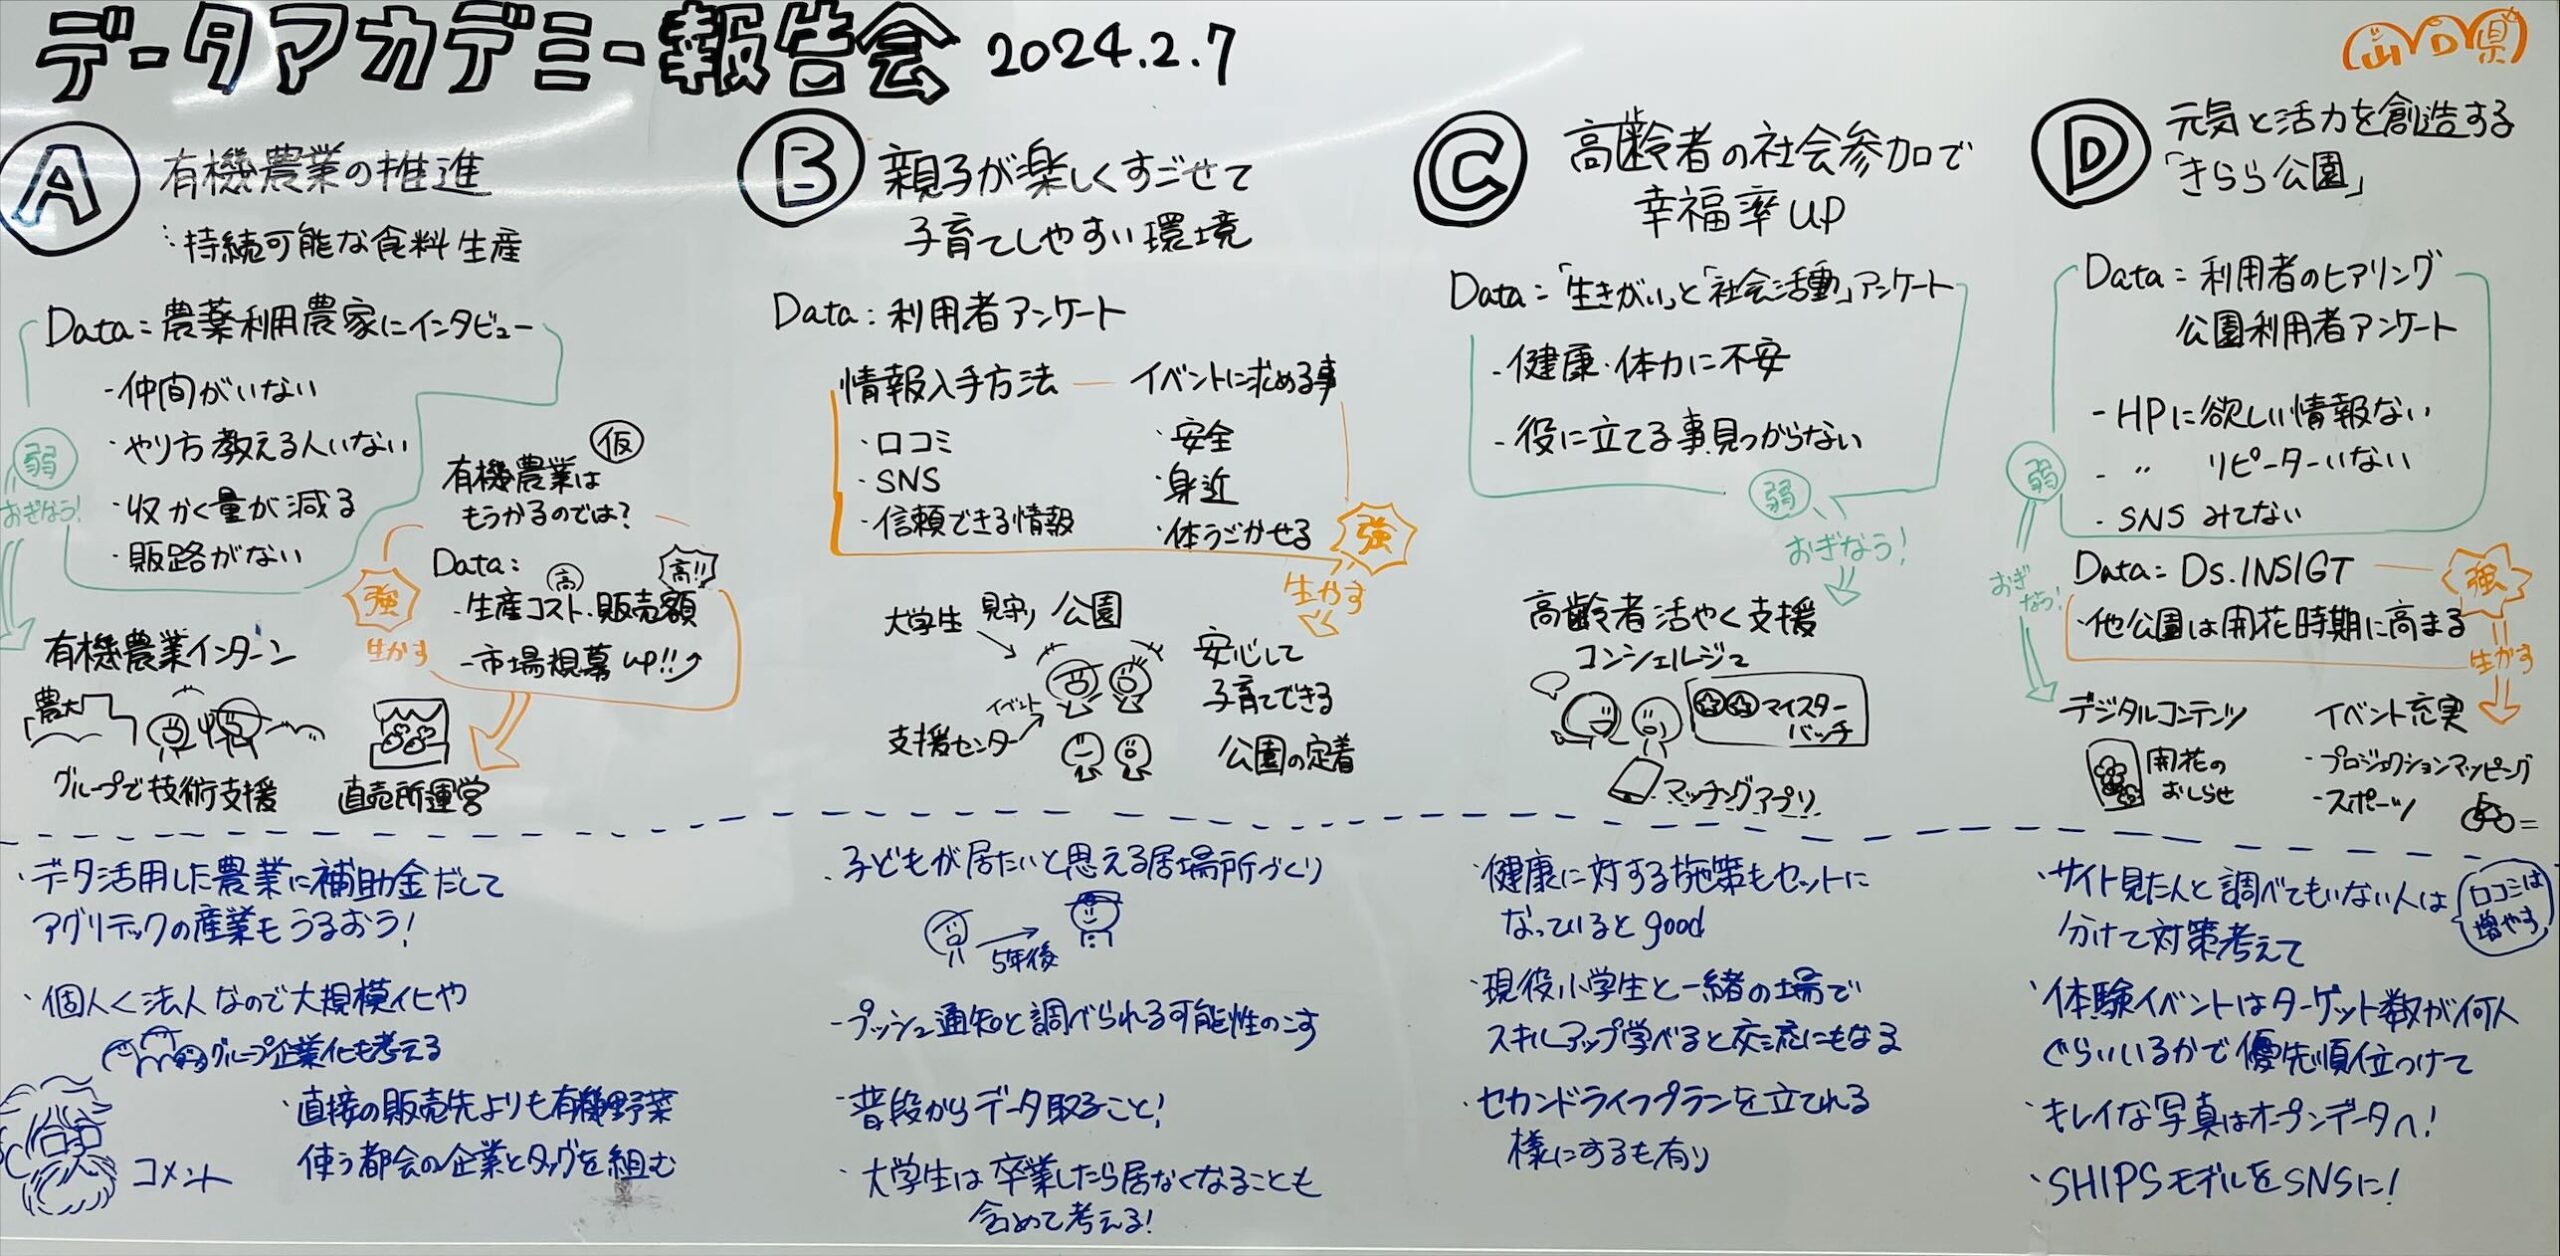 データマカデミー報告会 2024.2.7
山口県
A 有機農業の推進
∵持続可能な食料生産
Data=農薬利用農家にインタビュー
-仲間がいない
・やり方教える人いない
・収かく量が減る
・販路がない
弱
おぎなう!
仮
有機農業は
もうかるのでは?
Data:
高 高!!
-生産コスト・販売額
-市場規募up!!
強
生かす
有機農業インターン
農大
グループで技術支援
直売所運営
・データ活用した農業に補助金だして
アグリテックの産業もうるおう!
・個人く法人なので大規模化や
グループ企業化も考える
・直接の販売先よりも有機野菜
使う都会の企業とタッグを組む
コメント
B 親子が楽しくすごせて
子育てしやすい環境
Data:利用者アンケート
情報入手方法 イベントに求める事
・口コミ ・安全
・SNS ・身近
・信頼できる情報 ・体うごかせる
強
生かす
大学生 見守り 公園
イベント
支援センター
安心して
子育てできる
公園の定着
・子どもが居たいと思える居場所づくり
5年後
-プッシュ通知と調べられる可能性のこす
-普段からデータ取ること!
・大学生は卒業したら居なくなることも
含めて考える!
C 高齢者の社会参加で
幸福率up
Data=「生きがい」と「社会活動」アンケート
-健康・体力に不安
-役に立てる事見つからない
弱
おぎなう!
高齢者活やく支援
コンシェルジュ
マイスター
バッチ
マッチングアプリ
・健康に対する施策もセットに
なっているとgood
・現役小学生と一緒の場で
スキルアップ学べると交流にもなる
・セカンドライフプランを立てれる
様にするも有り
D 元気と活力を創造する
「きらら公園」
Data=利用者のヒアリング
公園利用者アンケート
-HPに欲しい情報ない
- 〃 リピーターいない
-SNSみてない
弱
おぎなう!
Data=Ds.INSIGT
・他公園は開花時期に高まる
強
生かす
デジタルコンテンツ
開花の
おしらせ
イベント充実
・プロジェクションマッピング
・スポーツ
・サイト見た人と調べてもいない人は
分けて対策考えて
口コミは
増やす
・体験イベントはターゲット数が何人
ぐらいいるかで優先順位つけて
・キレイな写真はオープンデータへ!
・SHIPSモデルをSNSに!